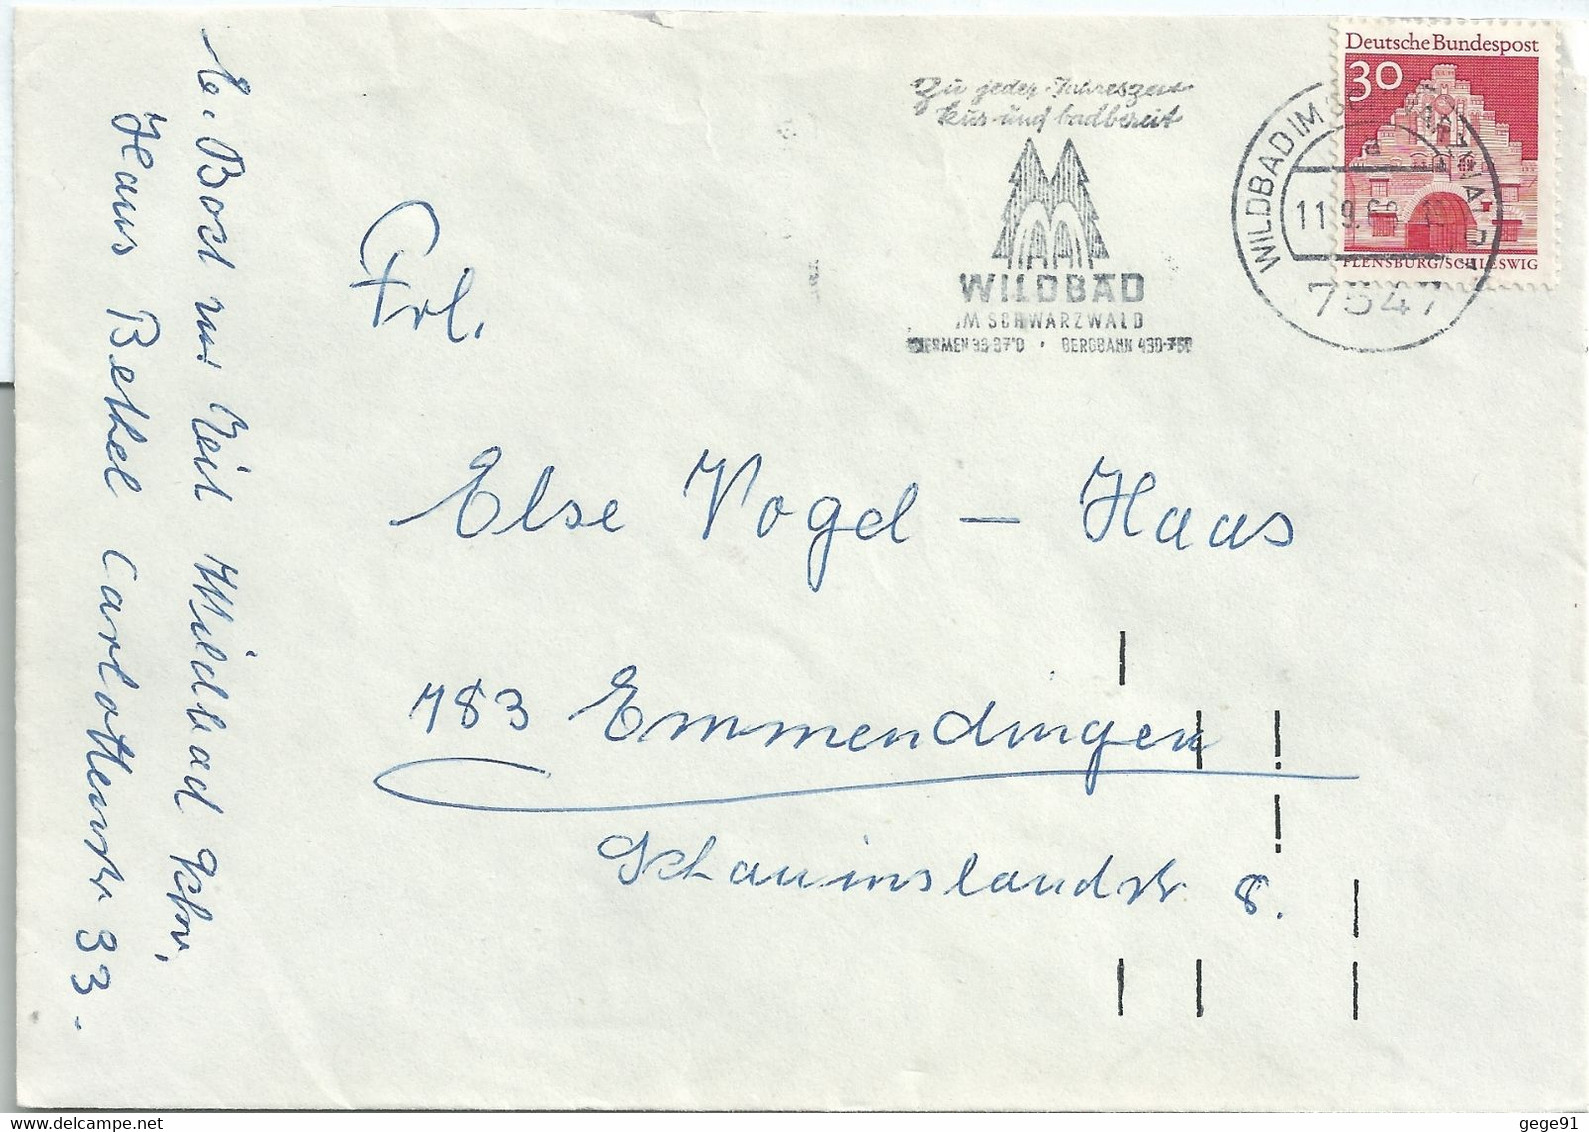 Deutsche Bundespost
30
FLENSBURG/SCHLESWIG
WILDBAD IM SCHWARZWALD
a
11.9.6
7547
Zu jeder Jahreszeit
kur- und badbereit
WILDBAD
IM SCHWARZWALD
THERMEN 33-37°C · BERGBAHN 430-750
Frl.
Else Vogel - Haas
783 Emmendingen
Schauinslandstr. 8.
E. Bock zur Zeit Wildbad Schw.
Haus Bethel Charlottenstr. 33.
gege91